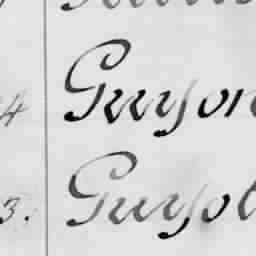 4 Guyon
3. Guyot